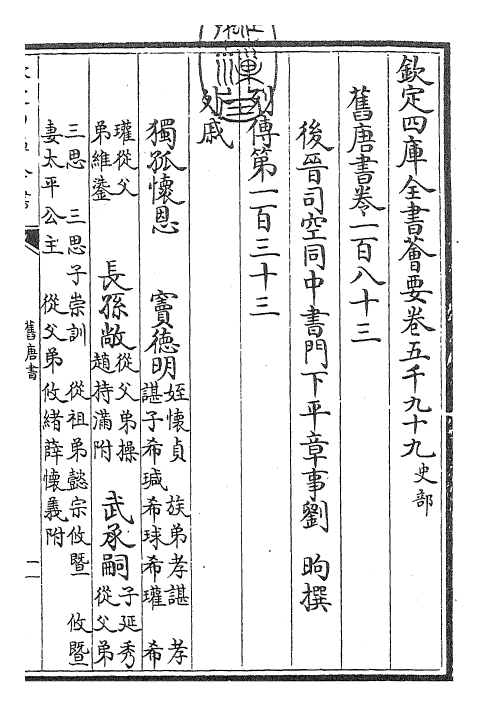 欽定四庫全書薈要卷五千九十九 史部
舊唐書卷一百八十三
後晉司空同中書門下平章事劉 昫撰
列傳第一百三十三
外戚
獨孤懷恩 竇德明 姪懷貞 族弟孝諶 孝
諶子希瑊 希球 希瓘 希
瓘從父
弟維鎏 長孫敞 從父弟操
趙持滿附 武承嗣 子延秀
從父弟
三思 三思子崇訓 從祖弟懿宗 攸暨 攸暨
妻太平公主 從父弟攸緒 薛懷義附
舊唐書
一